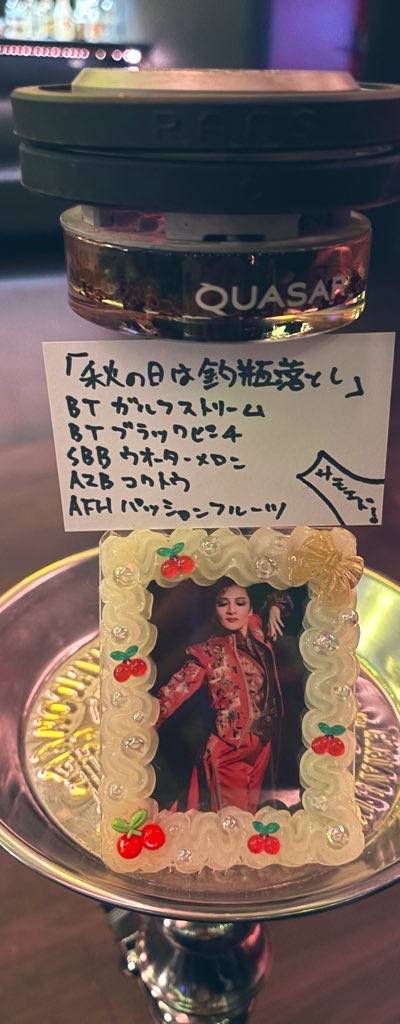 QUASAR
「秋の日は釣瓶落とし」
BT ガルフストリーム
BT ブラックピーチ
SBB ウォーターメロン
AZB コクトウ
AFH パッションフルーツ